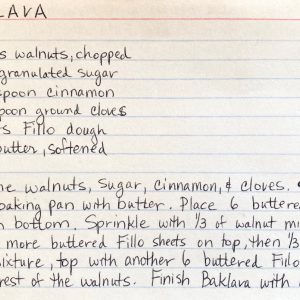 LAVA
s walnuts, chopped
granulated sugar
spoon cinnamon
poon ground cloves
rs Fillo dough
butter, softened
ne walnuts, sugar, cinnamon, & cloves.
baking pan with butter. Place 6 buttere
n bottom. Sprinkle with 1/3 of walnut mi
more buttered Fillo sheets on top, then 1/3
ixture, top with another 6 buttered Fillo
rest of the walnuts. Finish Baklava with